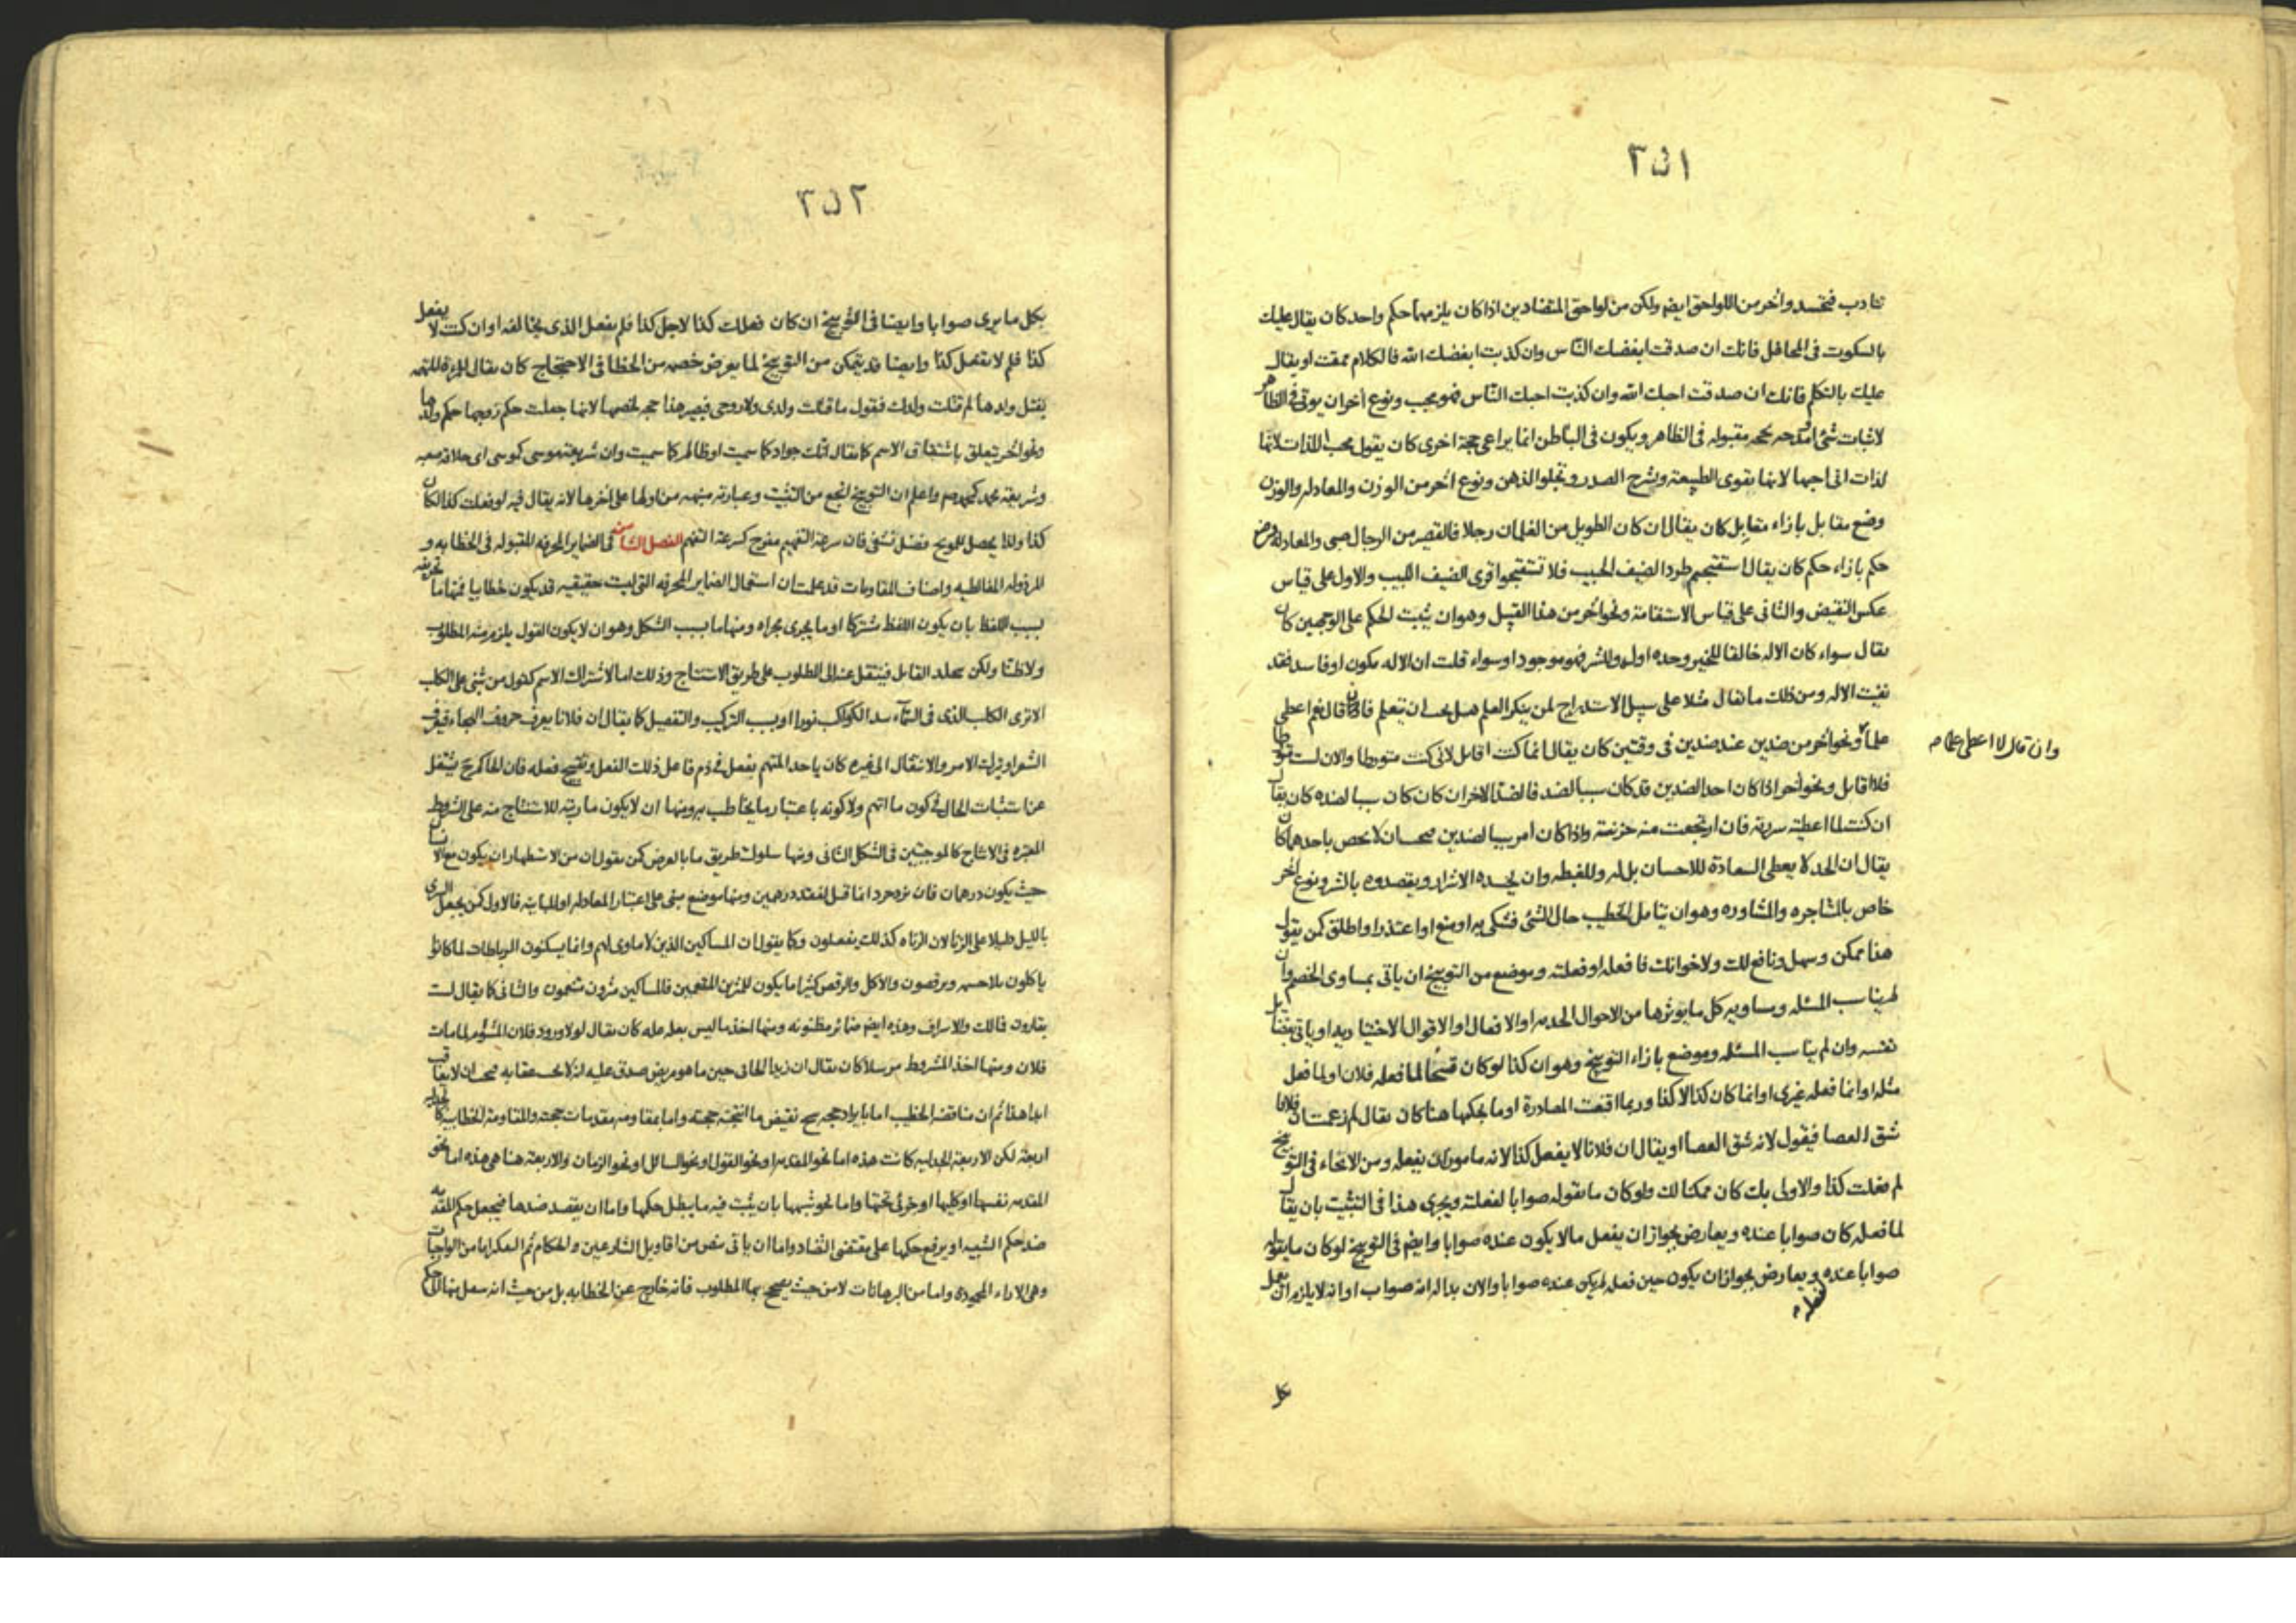 ٢٥١
تتادب فتحسد وآخر من اللواحق ايض ولكن من لواحق المتضادين اذا كان يلزمهما حكم واحد كان يقال عليك
بالسكوت فى المحافل فانك ان صدقت ابغضك الناس وان كذبت ابغضك الله فالكلام ممقت او يقال
عليك بالتكلم فانك ان صدقت احبك الله وان كذبت احبك الناس فهو محبب ونوع آخر ان يوتى فى الظاهر
لاثبات شئ او مدحه بحجه مقبوله فى الظاهر ويكون فى الباطن انما يراعى حجة اخرى كان يقول محب اللذات لانها
لذات انى احبها لانها تقوى الطبيعة وتشرح الصدر وتجلو الذهن ونوع آخر من الوزن والمعادله والوزن
وضع مقابل بازاء مقابل كان يقال ان كان الطويل من الغلمان رجلا فالقصير من الرجال صبى والمعادلة فرض
حكم بازاء حكم كان يقال استقبحتم طرد الضيف الحبيب فلا تستقبحوا قرى الضيف اللبيب والاول على قياس
عكس النقيض والثانى على قياس الاستقامة ونحو آخر من هذا القبيل وهو ان يثبت الحكم على الوجهين كان
يقال سواء كان الاله خالقا للخير وحده اوله وللشر فهو موجود او سواء قلت ان الاله مكون او فاسد فقد
نفيت الاله ومن ذلك ما يقال مثلا على سبيل الاستدراج لمن ينكر العلم هل يجب ان يتعلم فان قال نعم اعطى
علما ونحو آخر من ضدين عند ضدين فى وقتين كان يقال انما كنت اقاتل لانى كنت متورطا والان لست متورطا
وان قال لا اعطى علما م
فلا اقاتل ونحو آخر اذا كان احد الضدين قد كان سببا لضد فالضد الاخر ان كان كان سببا لضده كان يقال
ان كنت لما اعطيته سررته فان ارتجعت منه حزنته واذا كان امر سببا لضدين فيجب ان لا يخص باحدهما كان
يقال ان الجد لا يعطى السعادة للاحسان بل له وللغبطه وان يحسده الاشرار ويقصدوه بالشر ونوع آخر
خاص بالمشاجره والمشاوره وهو ان يتامل الخطيب حال الشئ فشكى به او منع او اعتذر او اطلق كمن يقول
هذا ممكن وسهل ونافع لك ولاخوانك فافعله او فعلته وموضع من التوبيخ ان ياتى بمساوى الخصم وان
لم يناسب المسئله ومساويه كل ما يوثرها من الاحوال الجديه او الافعال او الاقوال الاختياريه او ياتى بفضايل
نفسه وان لم يناسب المسئله وموضع بازاء التوبيخ وهو ان كذا لو كان قبيحا لما فعله فلان او لما فعل
مثله او انما فعله غيرى او انما كان كذا لا كذا وربما اقنعت المصادرة او ما يحكيها هنا كان يقال لم زعمت ان فلانا
شق العصا فيقول لانه شق العصا او يقال ان فلانا لا يفعل كذا لانه مامور ان يفعله ومن الانحاء فى التوبيخ
لم فعلت كذا والاولى بك كان ممكنا لك ولو كان ما يقوله صوابا لفعلته ويجرى هذا فى التثبيت بان يقال
لما فعله كان صوابا عنده ويعارض بجواز ان يفعل ما لا يكون عنده صوابا وايض فى التوبيخ لو كان ما يقوله
صوابا عنده لفعله م ويعارض بجواز ان يكون حين فعله لم يكن عنده صوابا والان بدا له انه صواب او انه لا يلزم ان يعمل
٢٥٢
بكل ما يرى صوابا وايضا فى التوبيخ ان كان فعلت كذا لاجل كذا فلم يفعل الذى يخالفه او ان كنت لا يفعل
كذا فلم لا تفعل كذا وايضا قد يتمكن من التوبيخ لما يعرض خصمه من الخطا فى الاحتجاج كان يقال للمرءة المتهمه
بقتل ولدها لم قتلت ولدك فتقول ما قتلت ولدى ولا زوجى فيصير هذا حجه لخصمها لانها جعلت حكم زوجها حكم ولدها
ونحو آخر يتعلق باشتقاق الاسم كما يقال انك جواد كما سميت او ظالم كما سميت وان شريعة موسى كموسى اى حلاقه صعبه
وشريعة محمد كمحمد واعلم ان التوبيخ انجع من التثبيت وعبارته منبهه من اولها على آخرها لانه يقال فيه لو فعلت كذا لكان
كذا ولذا يحصل للموبخ فضل تشفى فان سرعة التفهيم مفرح كسرعة التفهم الفصل الثامن فى الضماير المحرفه المقبوله فى الخطابه و
المرذوله المغالطيه واصناف المقاومات قد علمت ان استعمال الضماير المحرفه التى ليست حقيقيه قد يكون خطابيا فمنها ما تحريفه
بسبب اللفظ بان يكون اللفظ مشتركا او ما يجرى مجراه ومنها ما بسبب الشكل وهو ان لا يكون القول يلزم منه المطلوب
ولا ظنا ولكن القايل فينتقل عنه الى المطلوب على طريق الاستنتاج وذلك اما لاشتراك الاسم كقول من يثنى على الكلب
الا ترى الكلب الذى فى السماء اشد الكواكب نورا او بسبب التركيب والتفصيل كما يقال ان فلانا يعرف حروف الهجاء فيعرف
الشعر او بترك الامر والانتقال الى غيره كان ياخذ المتهم بفعل فى ذم فاعل ذلك الفعل وتقبيح فعله فان الحاكم ح يشتغل
عن استثبات الحال فى كون ما اتهم ولا كونه باعتبار ما يخاطب به ومنها ان لا يكون ماريته للاستنتاج منه على الشروط
المعتبره فى الانتاج كالموجبتين فى الشكل الثانى ومنها سلوك طريق ما بالعرض كمن يقول ان من الاستظهار ان يكون مع الانسان
حيث يكون درهمان فان انما قتل لفقد درهمين ومنها موضع مبنى على اعتبار المعادله او المباينه فالاول كمن يجعل السرى
بالليل دليلا على الزنا لان الزناه كذلك يفعلون وكما يقول ان المساكين الذين لا ماوى لهم وانما يسكنون الرباطات لما كانوا
ياكلون ويرقصون والاكل والرقص كثيرا ما يكون للمثرين المتنعمين فالمساكين مثرون متنعمون والثانى كما يقال لست
بقارون فمالك والاسراف وهذه ايض ضمائر مظنونه ومنها اخذ ما ليس بعله عله كان يقال لولا ورود فلان المشؤم لما مات
فلان ومنها اخذ المشروط مرسلا كان يقال ان زيدا الجانى حين ما هو مريض صدق عليه انه لا يجب عقابه فيجب ان لا يعاقب
ابدا هذا ثم ان مناقضه الخطيب اما بايراد حجه تنتج نقيض ما انتجته حجته واما بمقاومه مقدمات حجته والمقاومة الخطابيه كالجدليه
اربعة لكن الاربعة الجدليه كانت هذه اما نحو المقدمه او نحو القول او نحو السائل او نحو الزمان والاربعة هنا هى هذه اما نحو
المقدمه نفسها او كليها او جزئى تحتها واما نحو شبهها بان يثبت فيه ما يبطل حكمها واما ان يقصد ضدها فيجعل حكم المقدمه
ضد حكم الشبيه او يرفع حكمها على مقتضى التضاد واما ان ياتى بنص من اقاويل الشارعين والحكام ثم التفكير اما من الواجبات
وهى الاراء المحموده واما من البرهانات لا من حيث يصحح بها المطلوب فانه خارج عن الخطابه بل من حيث انه